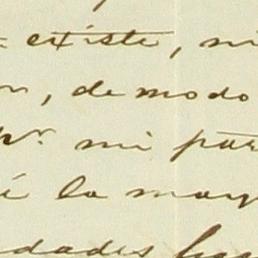 existe, ni
, de modo
pr. mi par
la may
dades